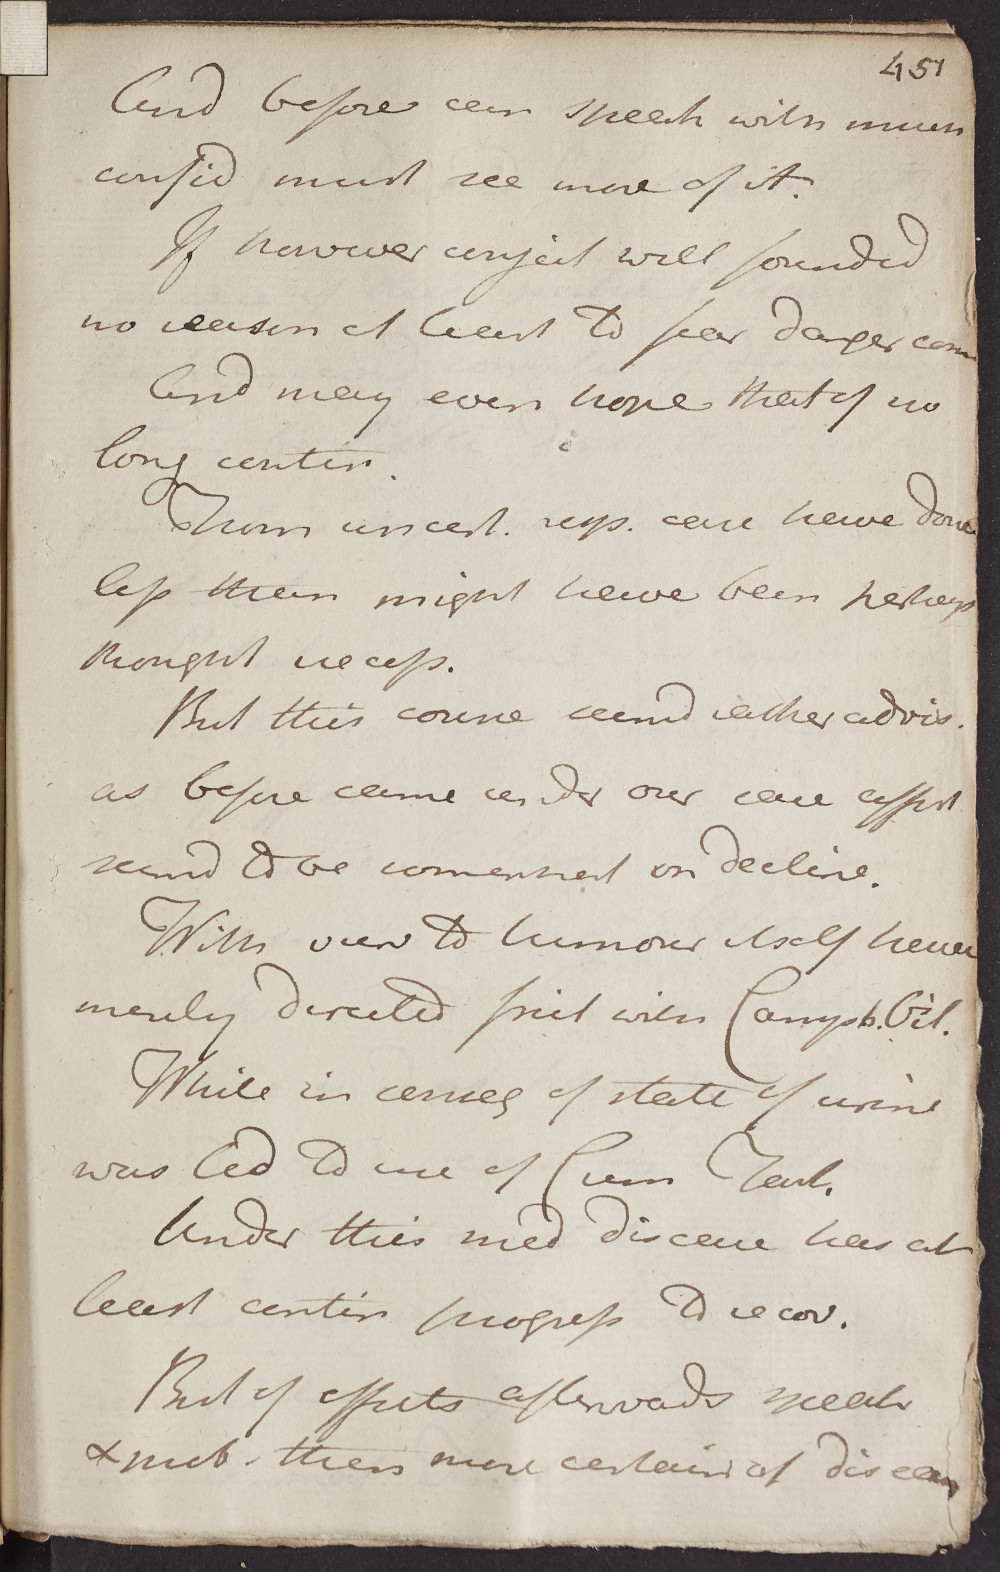 451
And before can speak with much
confid must see more of it.
If however conject well founded
no reason at least to fear danger cons
And may even hope that of no
long contin.
From uncert. resp. case have done
less than might have been perhaps
thought necess.
But this course seemd rather advis.
as before came under our care affect
seemd to be somewhat on decline.
With view to humour itself have
merely directed frict with Camph. Oil.
While in conseq of state of urine
was led to use of Crem Tart.
Under this med disease has at
least contin progress to recov.
But of effects afterwards speak
& prob. then more certain of disease